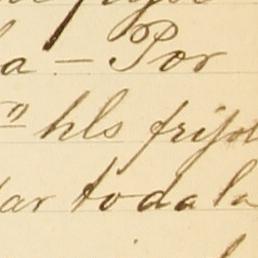 a - Por
" hls frijol
ar toda la